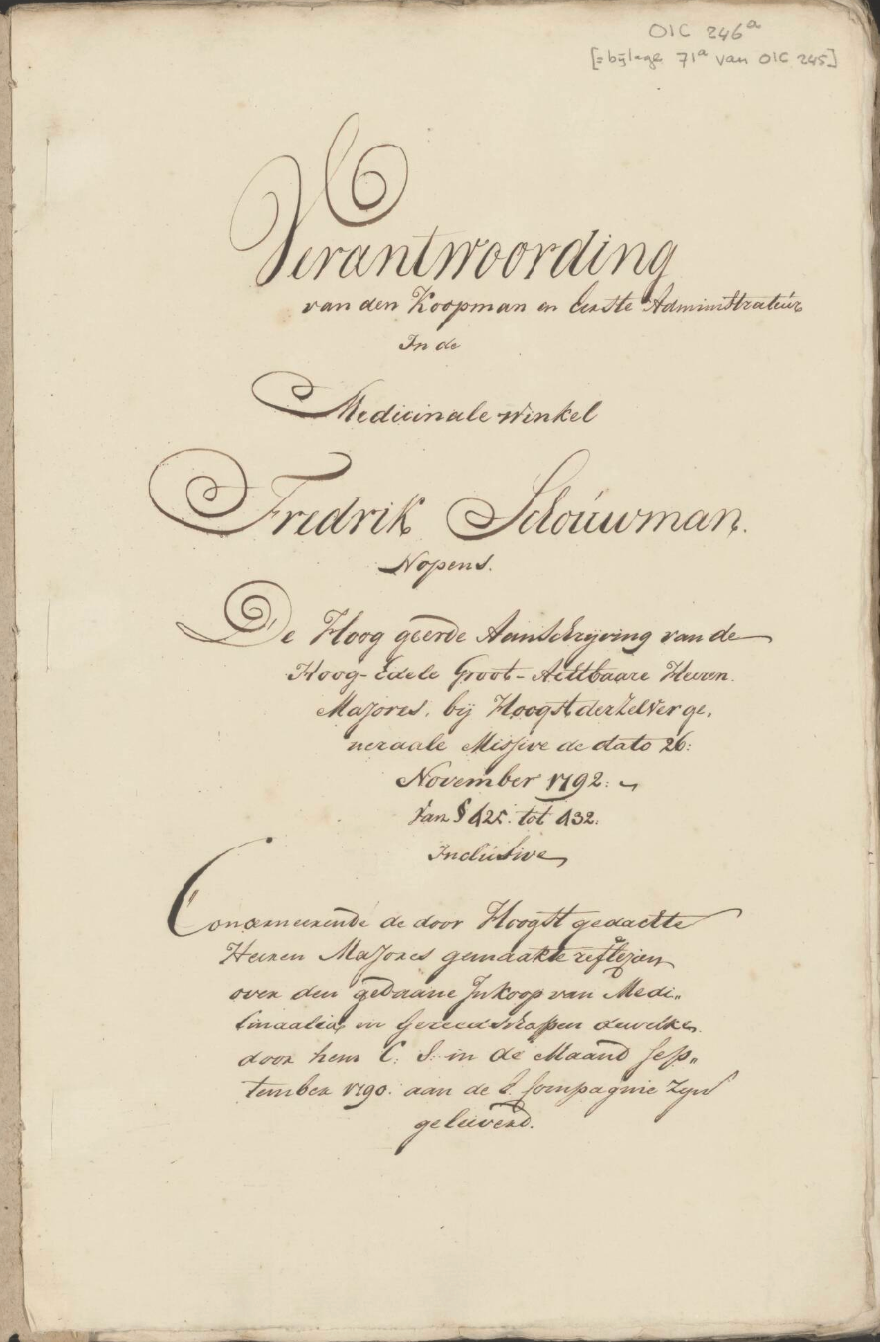 OIC 246a
[= bijlage 71a van OIC 245]
Verantwoording
van den Koopman en Eerste Administrateur
In de
Medicinale winkel
Fredrik Schouwman.
Nopens.
De Hoog geerde Aanschrijving van de
Hoog-Edele Groot-Achtbaare Heeren
Majores, bij Hoogst derzelver ge,
neraale Missive de dato 26:
November 1792:
Van § 425. tot 432.
Inclusive
Concerneerende de door Hoogst gedachte
Heeren Majores gemaakte reflexien
over den gedaane Inkoop van Medi„
cinaalia, en Gereedschappen dewelke
door hem C: S: in de Maand Sep„
tember 1790. aan de E. Compagnie Zyn
geleeverd.